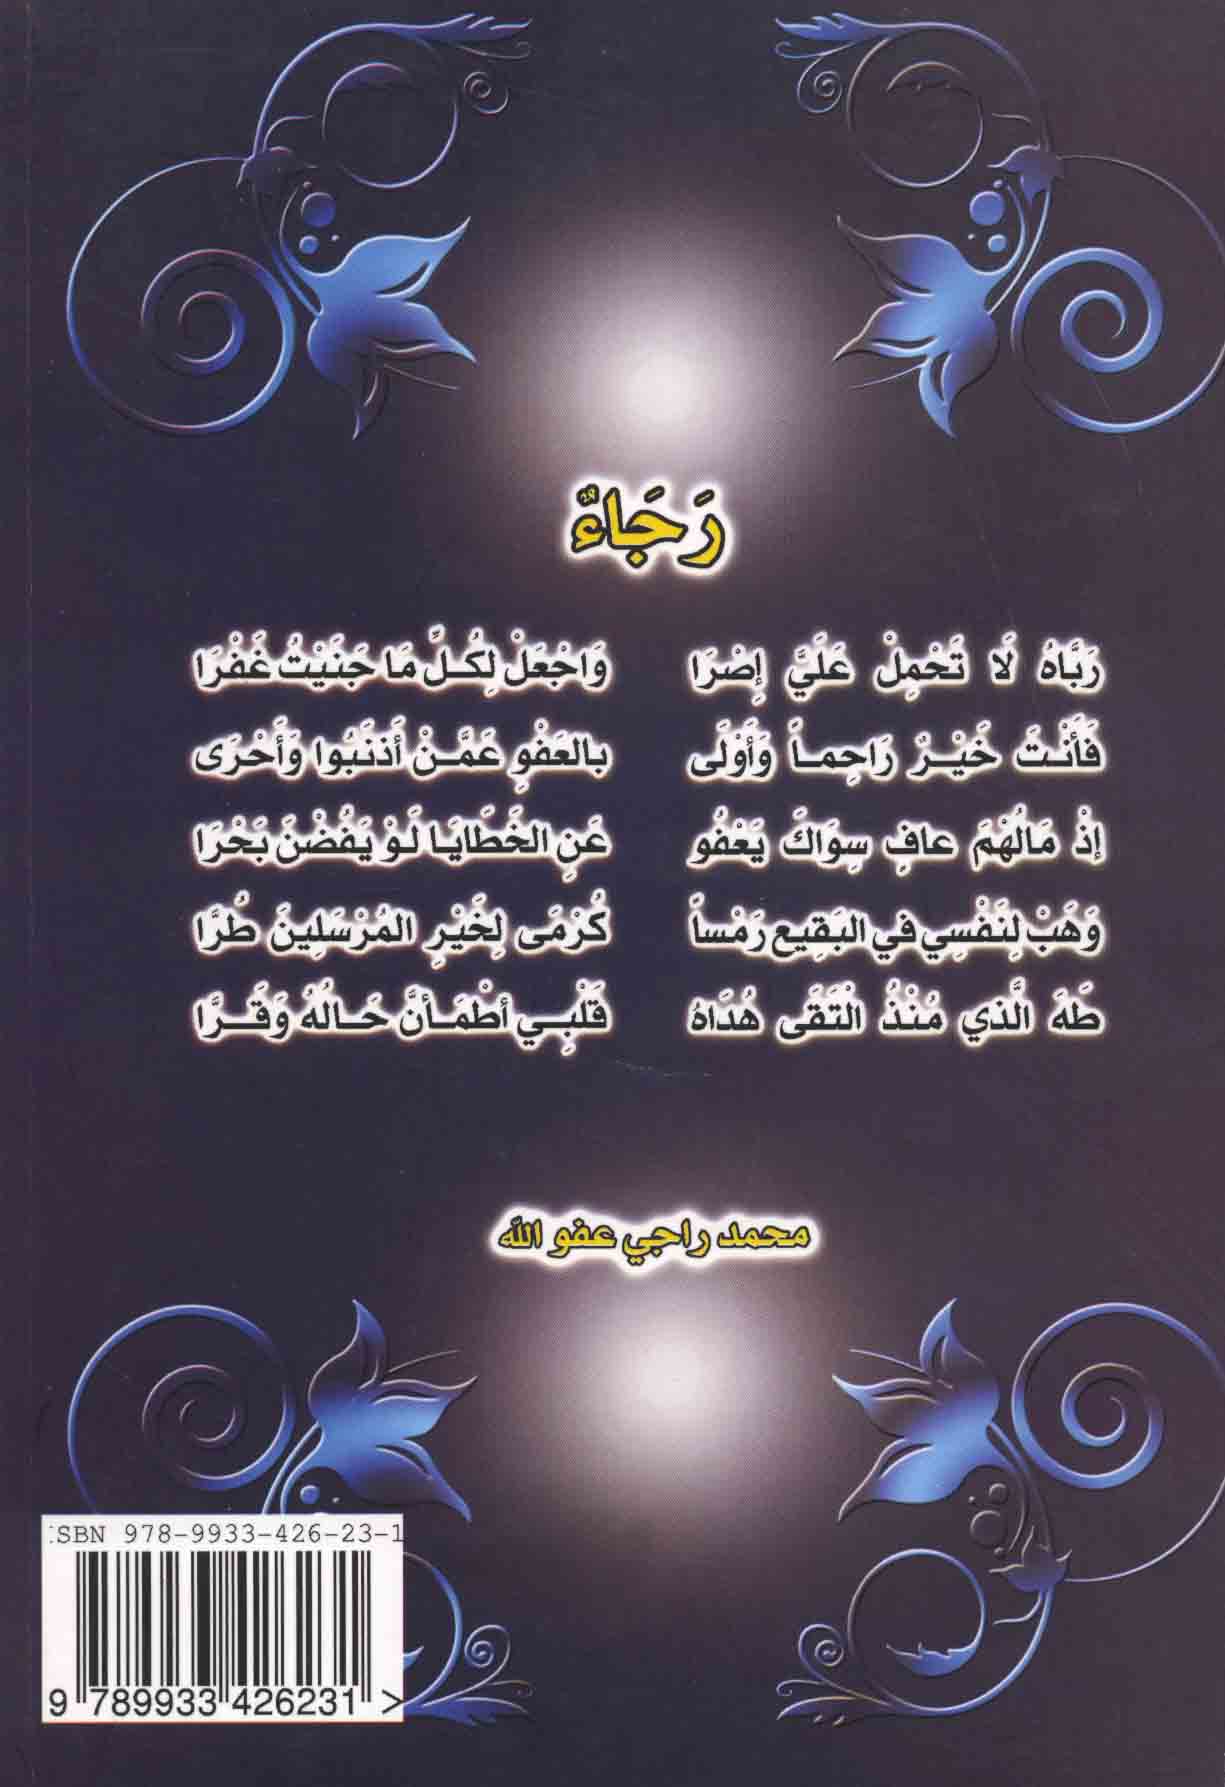 رَجَاءٌ
رَبَّاهُ لَا تَحْمِلْ عَلَيَّ إِصْرَا وَاجْعَلْ لِكُلِّ مَا جَنَيْتُ غَفْرَا
فَأَنْتَ خَيْرٌ رَاحِماً وَأَوْلَى بالعَفْوِ عَمَّنْ أَذنَبُوا وَأَحْرَى
إذْ مَالُهْمَ عافٍ سِوَاكَ يَعْفُو عَنِ الخَطَايَا لَوْ يَفُضْنَ بَحْرَا
وَهَبْ لِنَفْسِي في البَقِيعِ رَمْساً كُرْمَى لِخَيْرِ المُرْسَلِينَ طُرَّا
طَهَ الَّذي مُنْذُ الْتَقَى هُدَاهُ قَلْبِي أطْمَأنَّ حَالُهُ وَقَرَّا
محمد راجي عفو الله
ISBN 978-9933-426-23-1
9 789933 426231 >